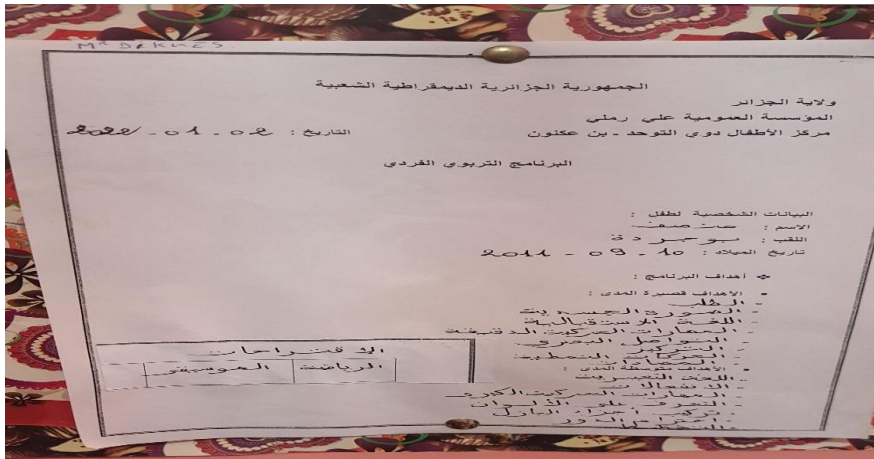 Mme DEKNES
الجمهورية الجزائرية الديمقراطية الشعبية
ولاية الجزائر
المؤسسة العمومية علي رملي
مركز الأطفال دوي التوحد - بن عكنون
التاريخ : 02 - 01 - 2022
البرنامج التربوي الفردي
البيانات الشخصية لطفل :
الاسم :
اللقب : بوجردة
تاريخ الميلاد : 10 - 09 - 2011
❖ أهداف البرنامج :
• الأهداف قصيرة المدى :
- الطلب
- الصورة الجسدية
- اللغة الاستقبالية
- المهارات الحركية الدقيقة
- التواصل البصري
- التركيز
- الحركات النمطية
• الأهداف متوسطة المدى :
- اللغة التعبيرية
- الانفعالات
- المهارات الحركية الكبرى
- التعرف على الألوان
- تركيب أجزاء البازل
- احترام الدور
الاقتراحات
الرياضة
الموسيقى